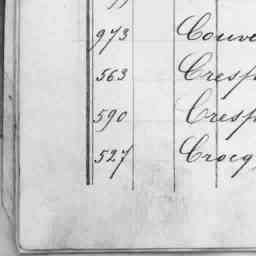 973 Couve
563 Cresp
590 Cresp
527 Crocq